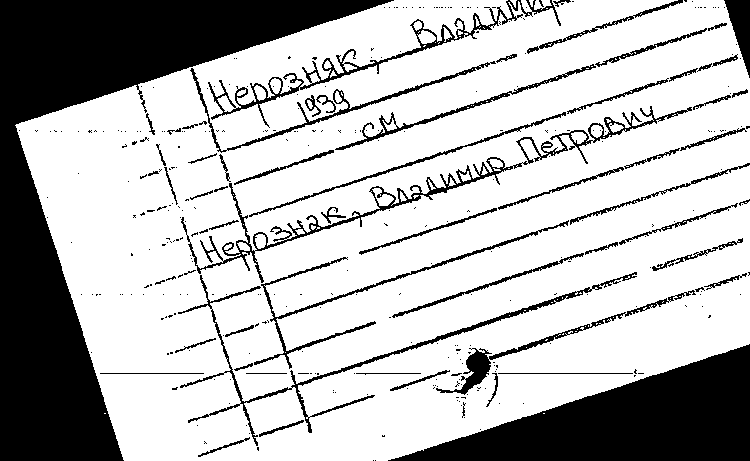 Нерозняк, Владимир
1939
см.
Нерознак, Владимир Петрович